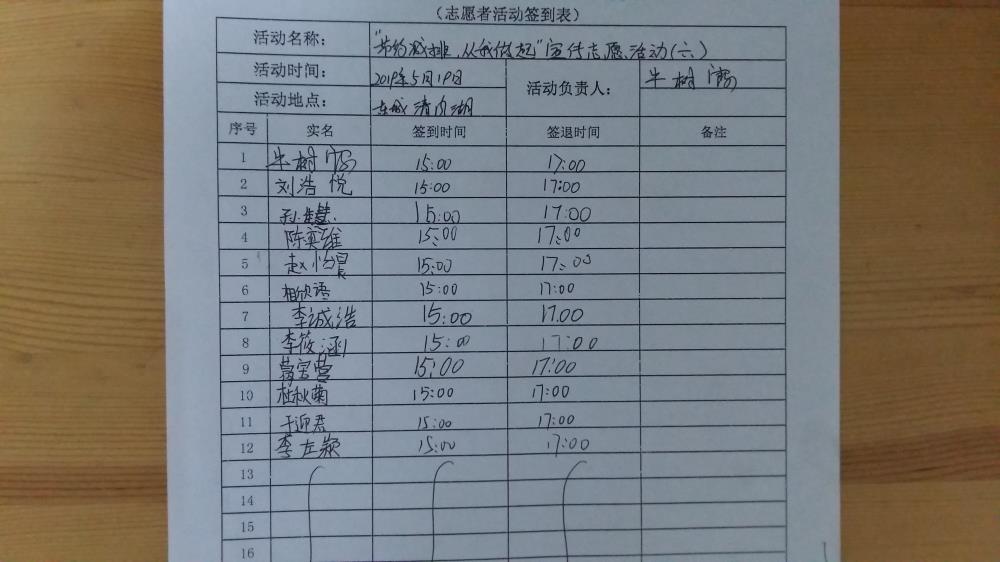 （志愿者活动签到表）
活动名称： “节约减排，从我做起”宣传志愿活动（六）
活动时间： 2019年5月19日 活动负责人： 牛树
活动地点： 东城清风湖
序号 实名 签到时间 签退时间 备注
1 牛树 15:00 17:00
2 刘浩悦 15:00 17:00
3 15:00 17:00
4 陈英雄 15:00 17:00
5 赵怡晨 15:00 17:00
6 相欣语 15:00 17:00
7 李诚浩 15:00 17:00
8 李筱涵 15:00 17:00
9 葛宝莹 15:00 17:00
10 杜秋菊 15:00 17:00
11 于迎君 15:00 17:00
12 李左颖 15:00 17:00
13
14
15
16